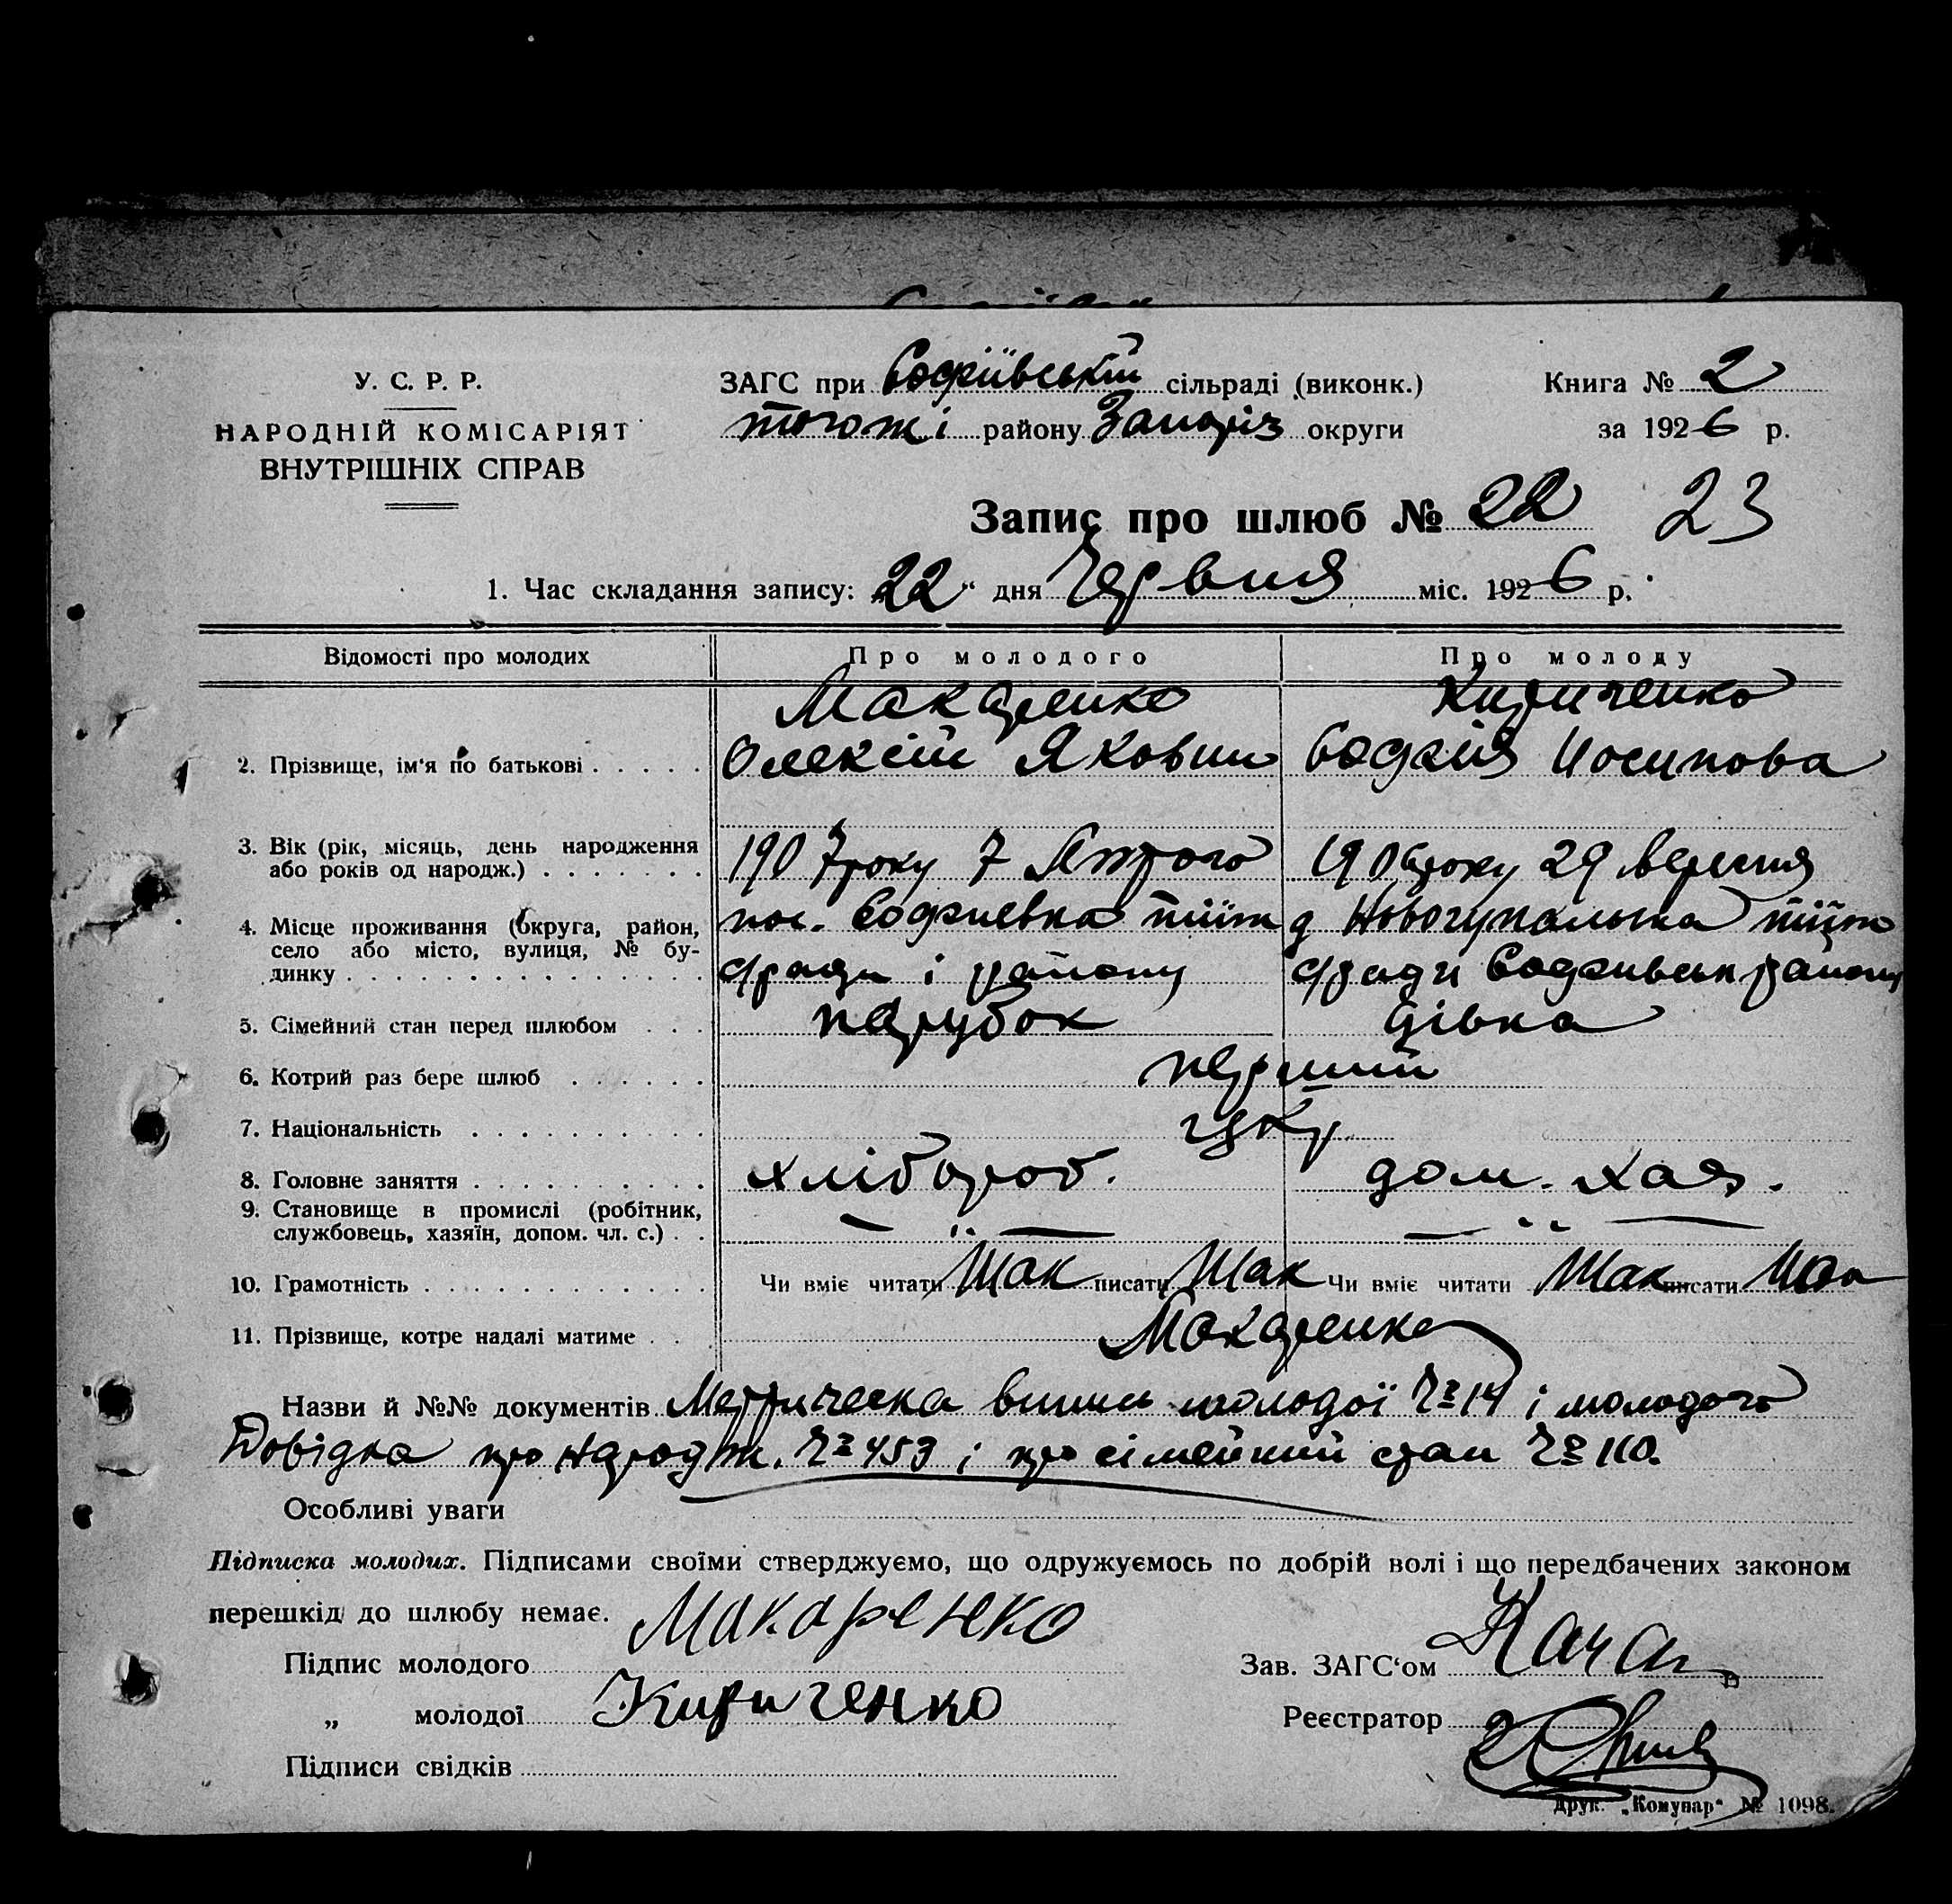 У. С. Р. Р.
НАРОДНІЙ КОМІСАРІЯТ
ВНУТРІШНІХ СПРАВ
ЗАГС при Софіївській сільраді (виконк.)
тогож і району Запоріз округи
Книга № 2
за 1926 р.
Запис про шлюб № 22 23
1. Час складання запису: „22“ дня Червня міс. 1926 р.
Відомості про молодих Про молодого Про молоду
Макаренко Кириченко
2. Прізвище, ім'я по батькові Олексій Якович Софія Йосипова
3. Вік (рік, місяць, день народження
або років од народж.) 1907 року 7 Лютого 1906 року 29 вересня
4. Місце проживання (округа, район, пос. Софиевка тіїж д Новогупаловка тіїж
село або місто, вулиця, № бу-
динку с/ради і району с/ради Софиевськ району
5. Сімейний стан перед шлюбом парубок дівка
6. Котрий раз бере шлюб перший
7. Національність укр
8. Головне заняття хлібороб. дом. хаз.
9. Становище в промислі (робітник,
службовець, хазяїн, допом. чл. с.) — „ — — „ —
10. Грамотність Чи вміє читати Так писати Так Чи вміє читати Так писати Так
11. Прізвище, котре надалі матиме Макаренко
Назви й №№ документів Метрическа випись молодої № 14 і молодого
Довідка про народж. № 453 і про сімейний стан № 110.
Особливі уваги
Підписка молодих. Підписами своїми стверджуємо, що одружуємось по добрій волі і що передбачених законом
перешкід до шлюбу немає.
Підпис молодого Макаренко
„ молодої Кириченко
Підписи свідків
Зав. ЗАГС'ом
Реєстратор
Друк. „Комунар“ № 1098.